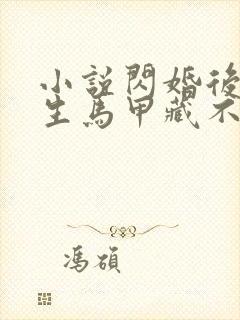 小說閃婚後
生馬甲藏不
馮碩